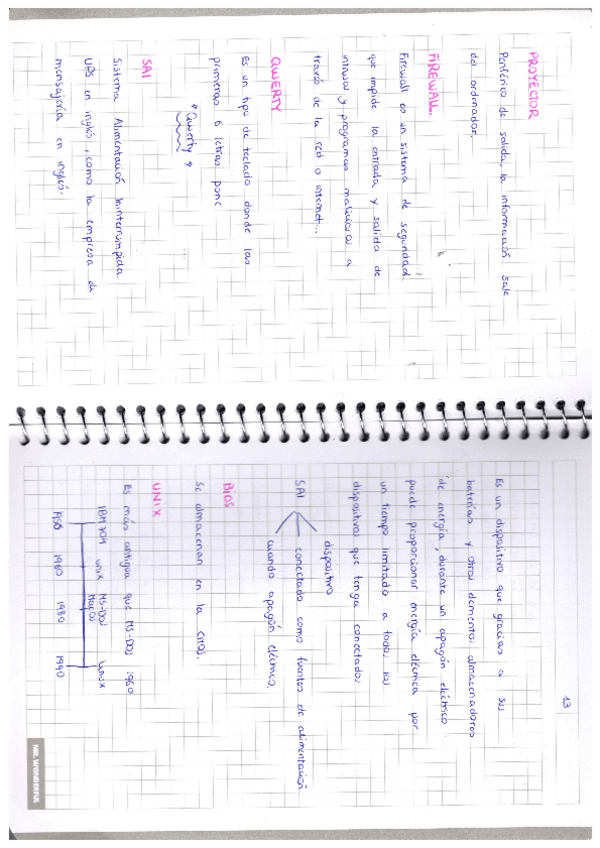 PROYECTOR
Periférico de salida, la información sale
del ordenador.
FIREWALL
Firewall es un sistema de seguridad
que impide la entrada y salida de
intrusos y programas maliciosos a
través de la red o internet...
QWERTY
Es un tipo de teclado donde las
primeras 6 letras pone
"Qwerty"
SAI
Sistema Alimentación Ininterrumpida
UPS en inglés, como la empresa de
mensajería en inglés.
13
Es un dispositivo que gracias a sus
baterías y otros elementos almacenadores
de energía, durante un apagón eléctrico
puede proporcionar energía eléctrica por
un tiempo limitado a todos los
dispositivos que tenga conectados
dispositivo
SAI
conectado como fuentes de alimentación
cuando apagón eléctrico.
BIOS
Se almacenan en la CMOS.
UNIX
Es más antigua que MS-DOS 1960
IBM704 unix MS-DOS Linux
MacOS
1950 1960 1980 1990
MR. WONDERFUL